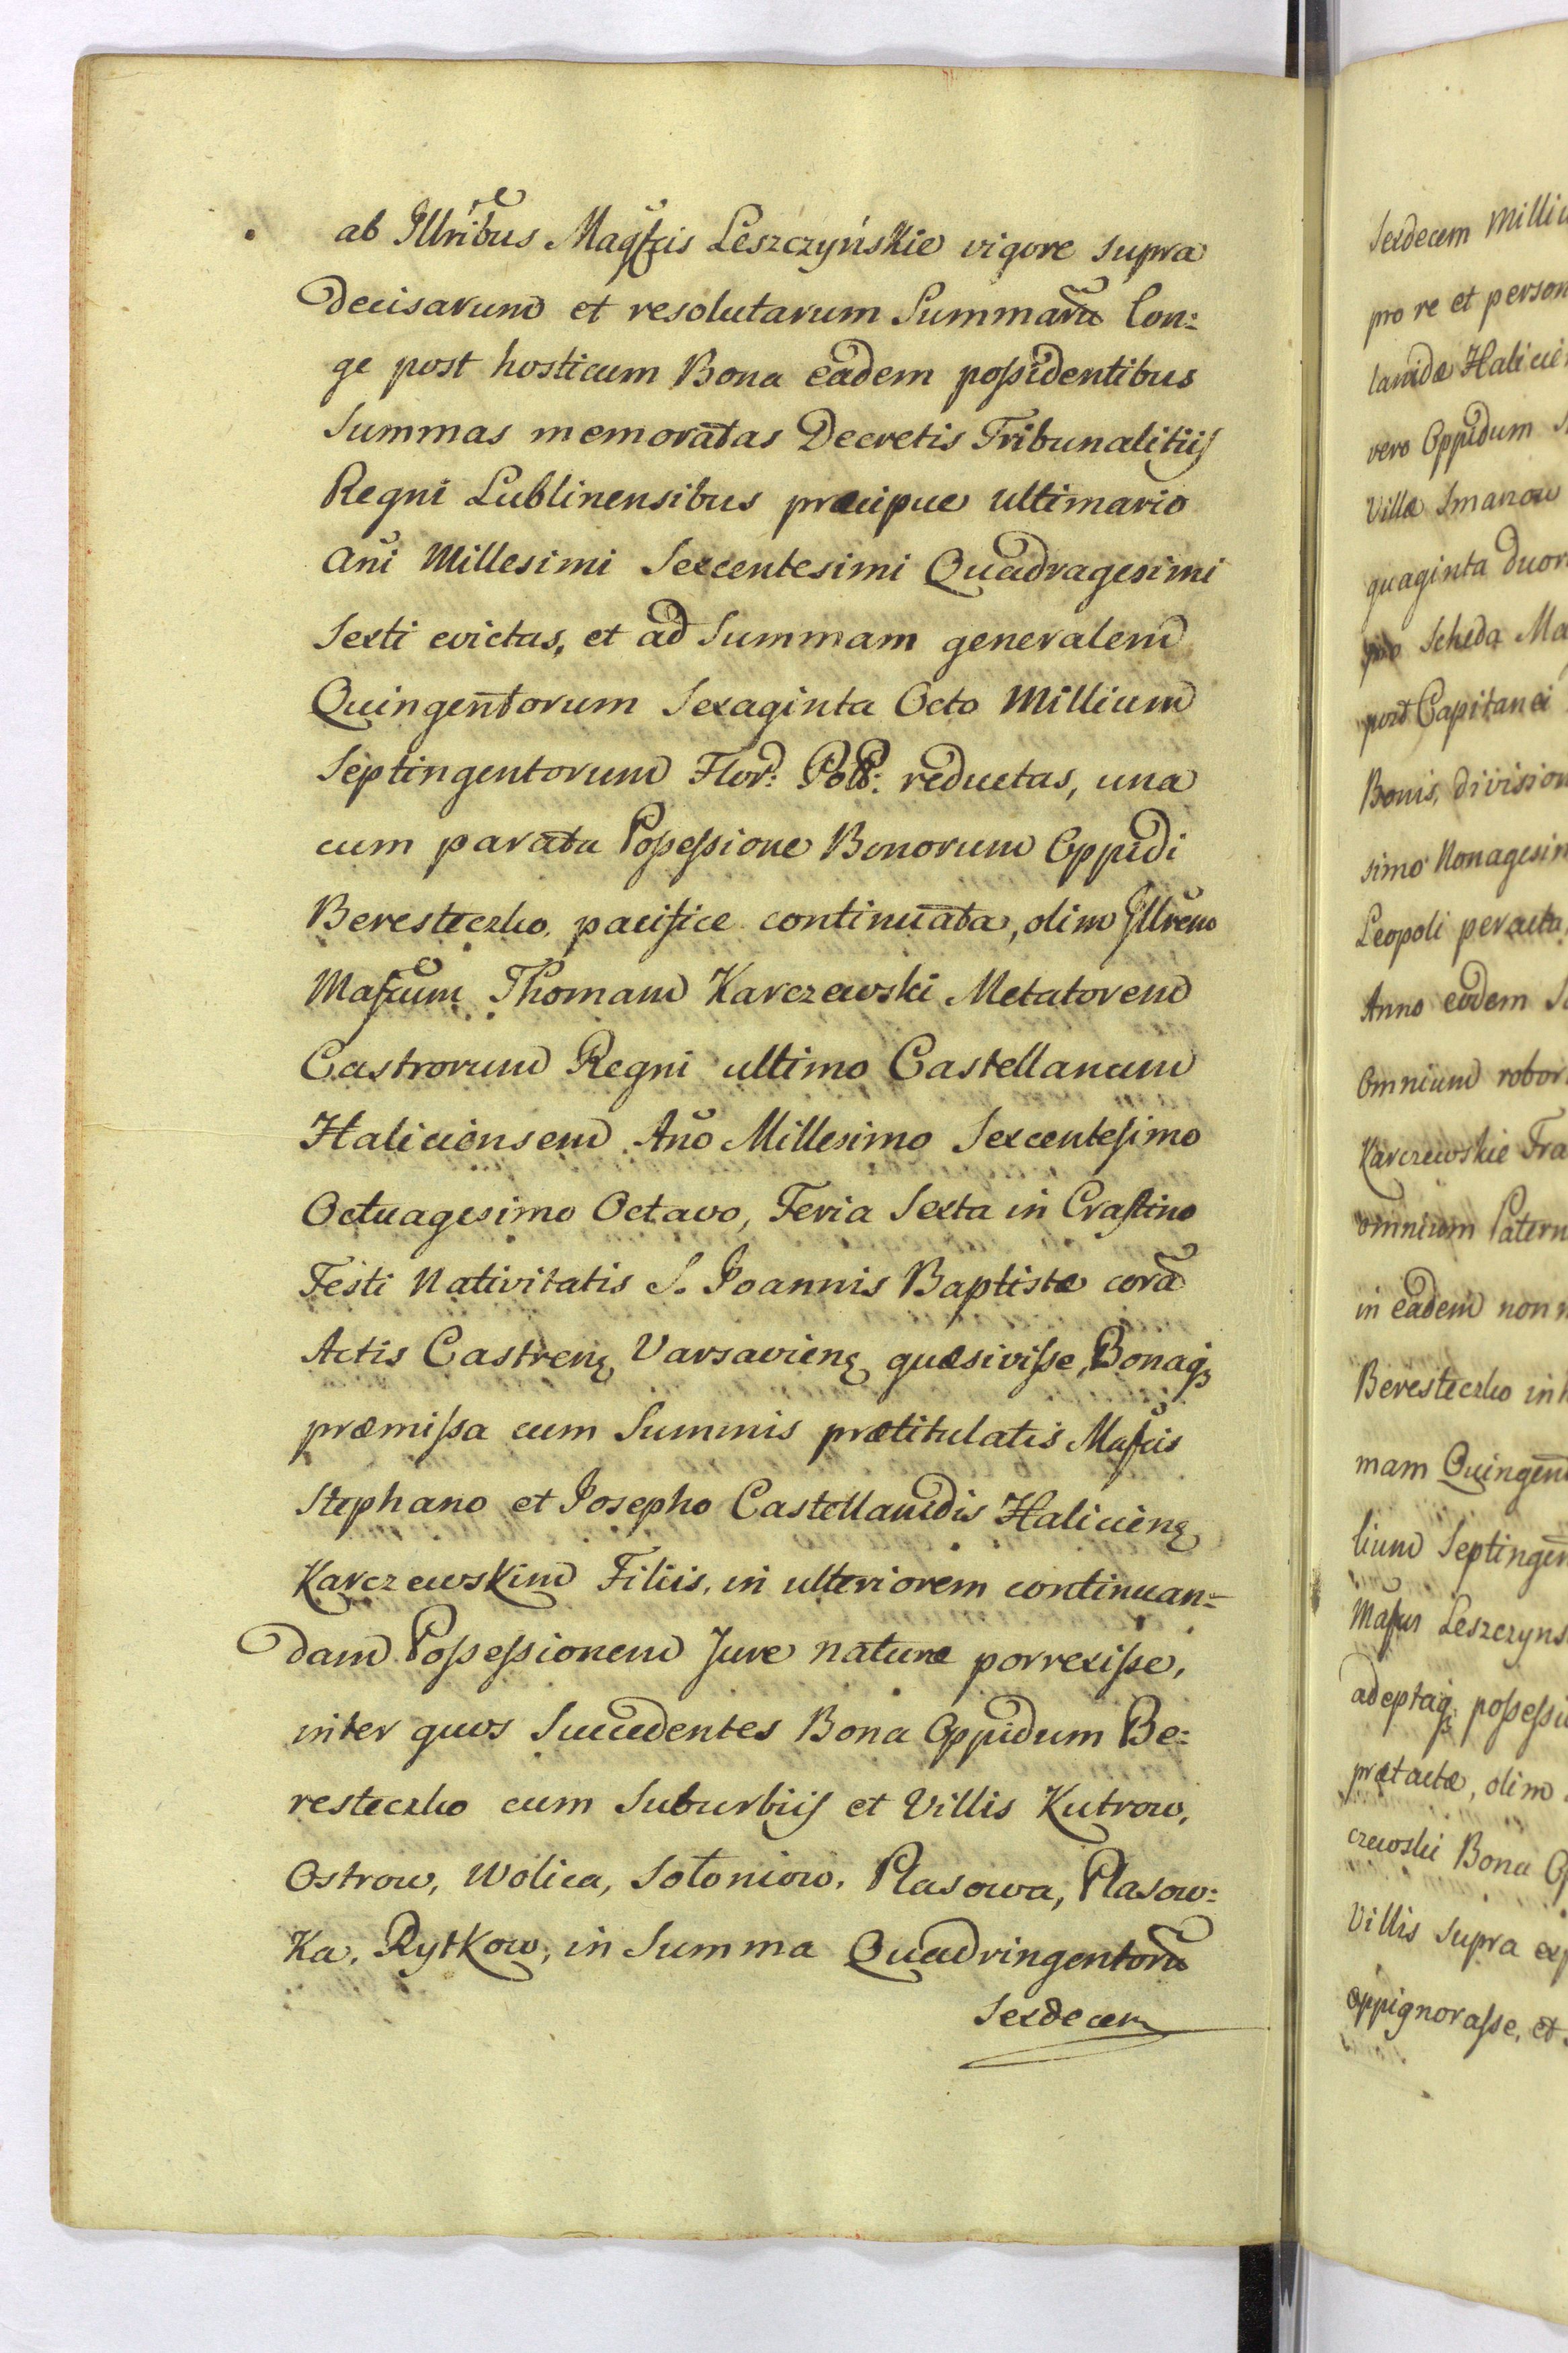 ab Illribus Magfcis Leszczyńskie vigore supra
decisarum et resolutarum Summaru lon:
ge post hosticum Bona eadem poſsidentibus
Summas memoratas Decretis Tribunalitiis
Regni Lublinensibus præcipue ultimario
Ani Millesimi Sexcentesimi Quadragesimi
Sexti evictas, et ad Summam generalem
Quingentorum Sexaginta Octo Millium
Septingentorum Flor: Poll: reductas, una
cum parata Poſseſsione Bonorum Oppidi
Beresteczko pacifice continuata, olim Illrem
Mafcum Thomam Karczewski Metatorem
Castrorum Regni ultimo Castellanum
Haliciensem Ano Millesimo Sexcenteſimo
Octuagesimo Octavo, Feria Sexta in Craſtino
Festi Nativitatis S. Joannis Baptistæ cora
Actis Castren: Varsavien: quæsiviſse, Bonaq3
præmiſsa cum Summis prætitulatis Mafcis
Stephano et Josepho Castellanidis Halicien:
Karczewskim Filiis, in ulteriorem continuan=
dam Poſseſsionem Jure naturæ porrexiſse,
inter quos Succedentes Bona Oppidum Be:
resteczko cum Suburbiis et Villis Kutrow,
Ostrow, Wolica, Sołoniow, Plasowa, Plasow:
Ka, Rytkow, in Summa Quadringentoru
Sexdecem
Sexdecem Milliu
pro re et person
lanidæ Halicie
vero Oppidum
Villæ Smarzow
quaginta duor
Scheda Ma
post Capitanei
Bonis, division
simo Nonagesim
Leopoli peracta
Anno eodem
Omnium robor
Karczewskie Fra
omnium Patern
in eadem non
Beresteczko in
mam Quingen
lium Septingen
Mafcus Leszczyns
adeptaq3 poſseſsi
prætactæ, olim
czewski Bona O
Villis supra ex
oppignoraſse, et